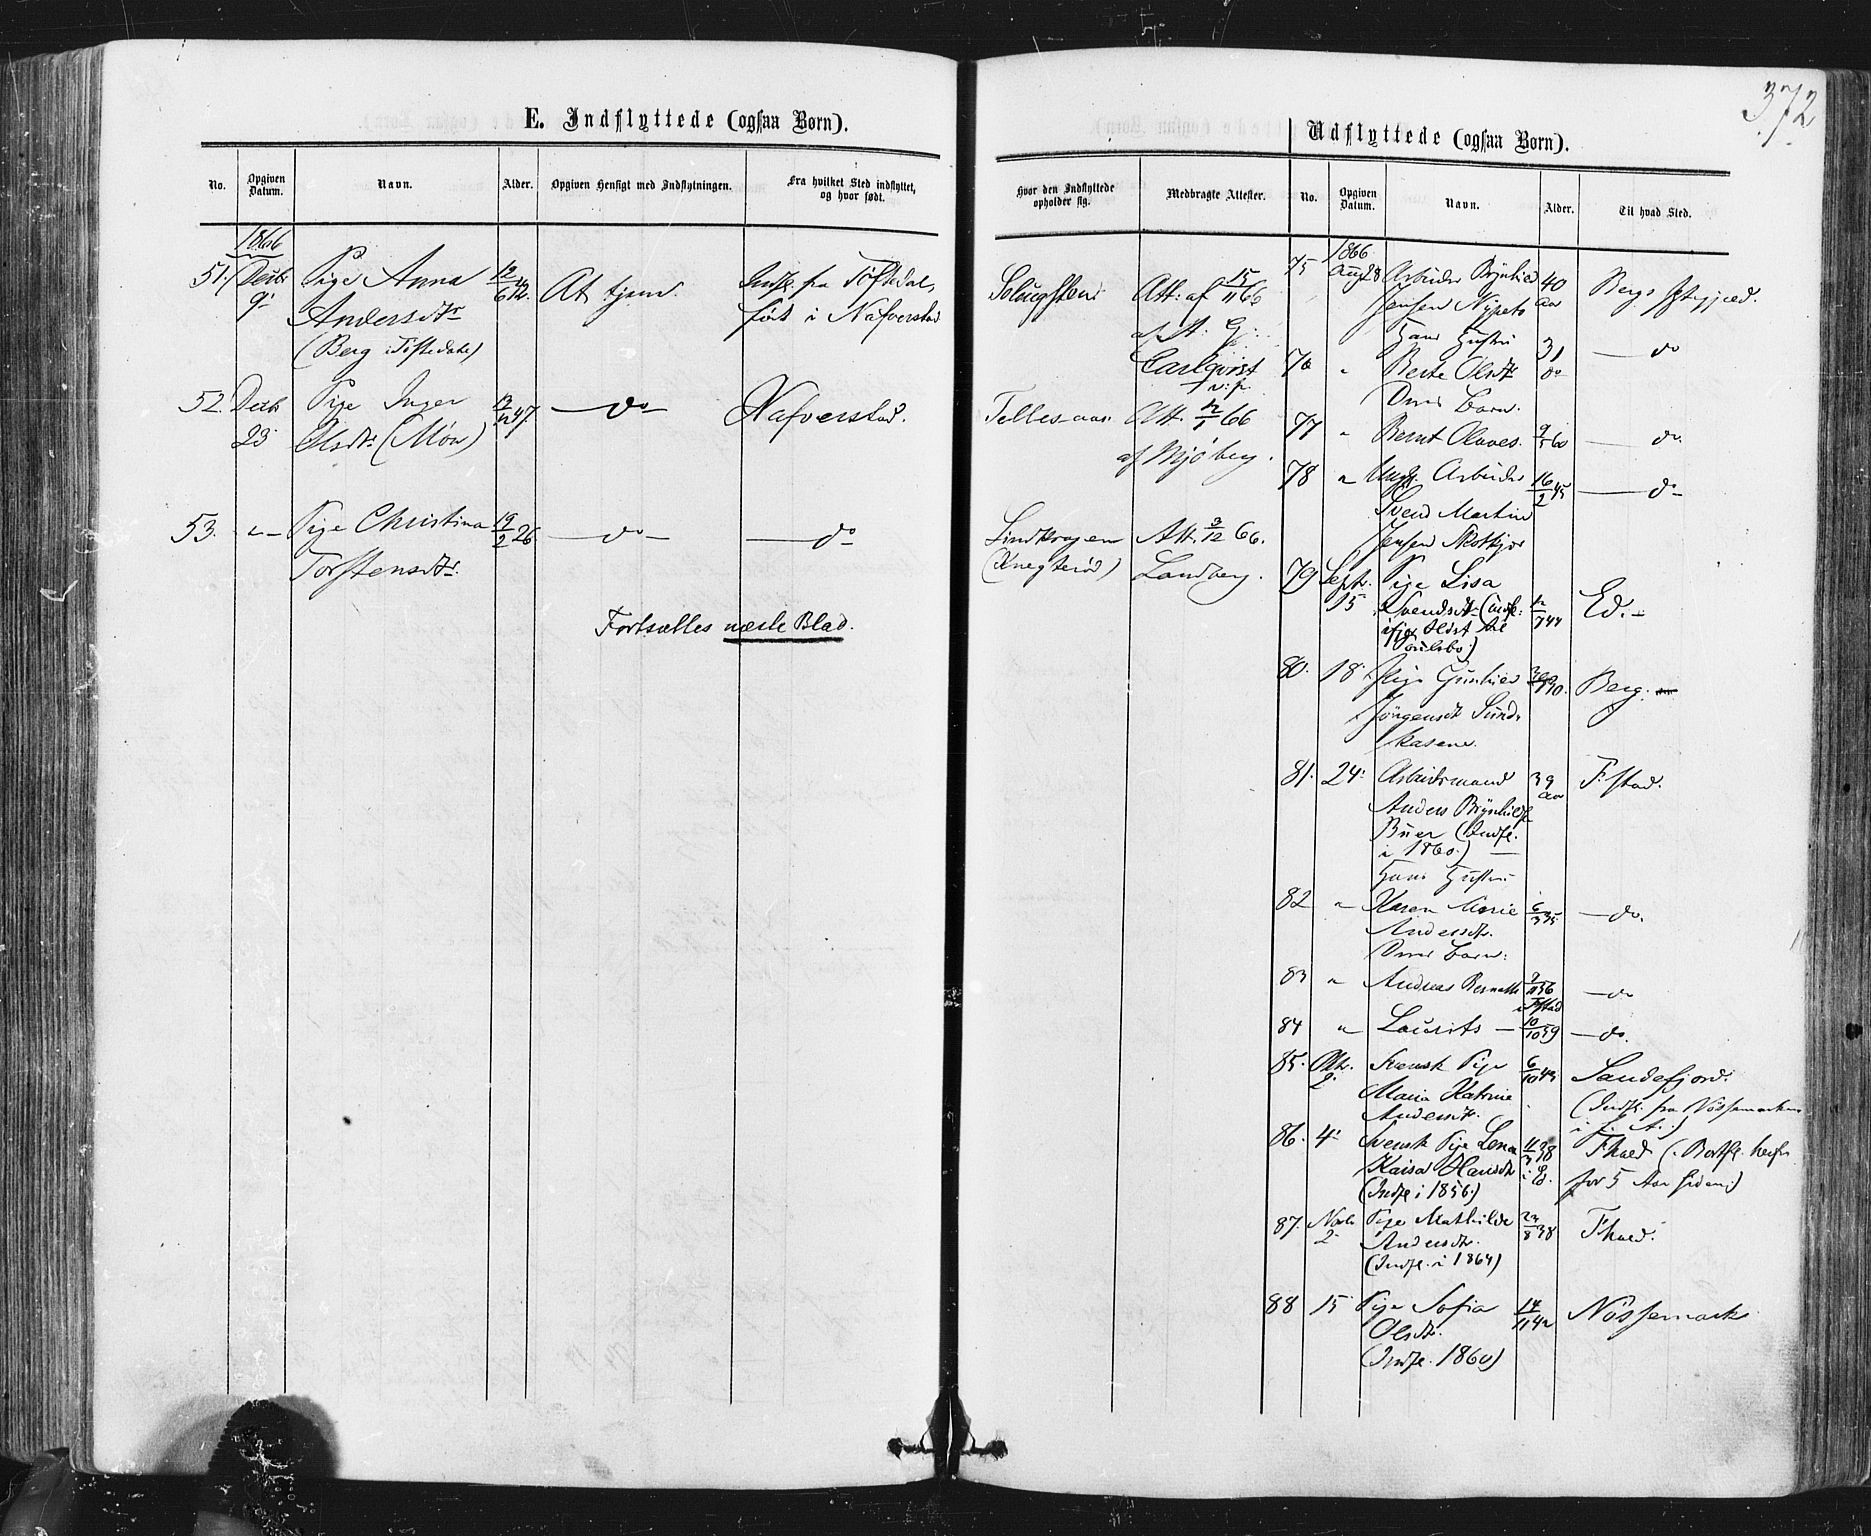 372
E. Indflyttede (ogsaa Børn).
No. Opgiven Datum. Navn. Alder. Opgiven Hensigt med Indflytningen. Fra hvilket Sted indflyttet, og hvor født. Hvor den Indflyttede opholder sig. Medbragte Attester.
1866
51. Decbr 9. Pige Anna 12/6 42. At tjene. Indfl. fra Töftedal, Att: af 15/11 66
Andersdtr född i Nafverstad af A. G.
(Berg i Töftedal) Carlqvist
52. Decbr 23. Pige Inger 47. — do — Nafverstad. Att. 12/1 66
Olsdtr. (Mön) af Mjöberg.
53. " — Pige Christina 19/2 26. — do — — do — Att. 3/12 66.
Torstensdtr. Landberg.
Fortsættes næste Blad.
Udflyttede (ogsaa Børn).
No. Opgiven Datum. Navn. Alder. Til hvad Sted.
1866
75 Aug 28 Arbeider 40 aar Berg
Jensen
Hans Hustru
76 " Berte Olsdtr 31 do — do
Deres Barn.
77 " Bernt Olaves. 9/5 60 — do.
78 " Ungk. Arbeider 16/2 45 — do —
Svend Martin
Jensen
79 Septr. 15 Pige Lisa 12/7 44 Ed. —
Svendsdtr
80. 18. Pige Berg.
Jörgensdtr
81. 24. Arbeidsmand 39 aar F:stad.
Anders
Buer (Indfl.
i 1860.) —
Hans Hustru
82 " Karen Marie 6/3 35 — do.
Andersdtr.
Deres Barn:
83 " Andreas 56 — do
i F:stad
84 " Laurits — 10/10 59 — do.
85. Oktr. 2. Svensk Pige 6/10 Sandefjord.
Maria Katrine (Indfl. fra Nössemarken
Andersdtr. i f. A.)
86. 4. Svensk Pige Lena 11/3 38 F:hald (Bortfl. herfra
Kaisa Hansdtr i Ed. for 5 Aar siden)
(Indfl. i 1856.)
87. Novbr 2. Pige Mathilde 23/8 38 F:hald.
Andersdtr.
(Indfl. i 1864)
88 15 Pige Sofia 14/11 42 Nössemark
Olsdtr.
(Indfl. 1860)